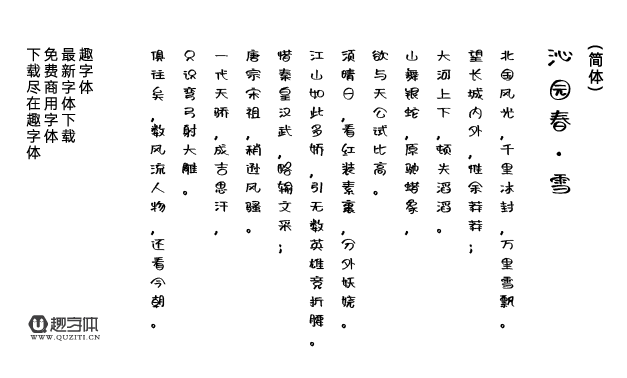 (简体)
沁园春·雪
北国风光,千里冰封,万里雪飘。
望长城内外,惟余莽莽;
大河上下,顿失滔滔。
山舞银蛇,原驰蜡象,
欲与天公试比高。
须晴日,看红装素裹,分外妖娆。
江山如此多娇,引无数英雄竞折腰。
惜秦皇汉武,略输文采;
唐宗宋祖,稍逊风骚。
一代天骄,成吉思汗,
只识弯弓射大雕。
俱往矣,数风流人物,还看今朝。
趣字体
最新字体下载
免费商用字体
下载尽在趣字体
趣字体
WWW.QUZITI.CN